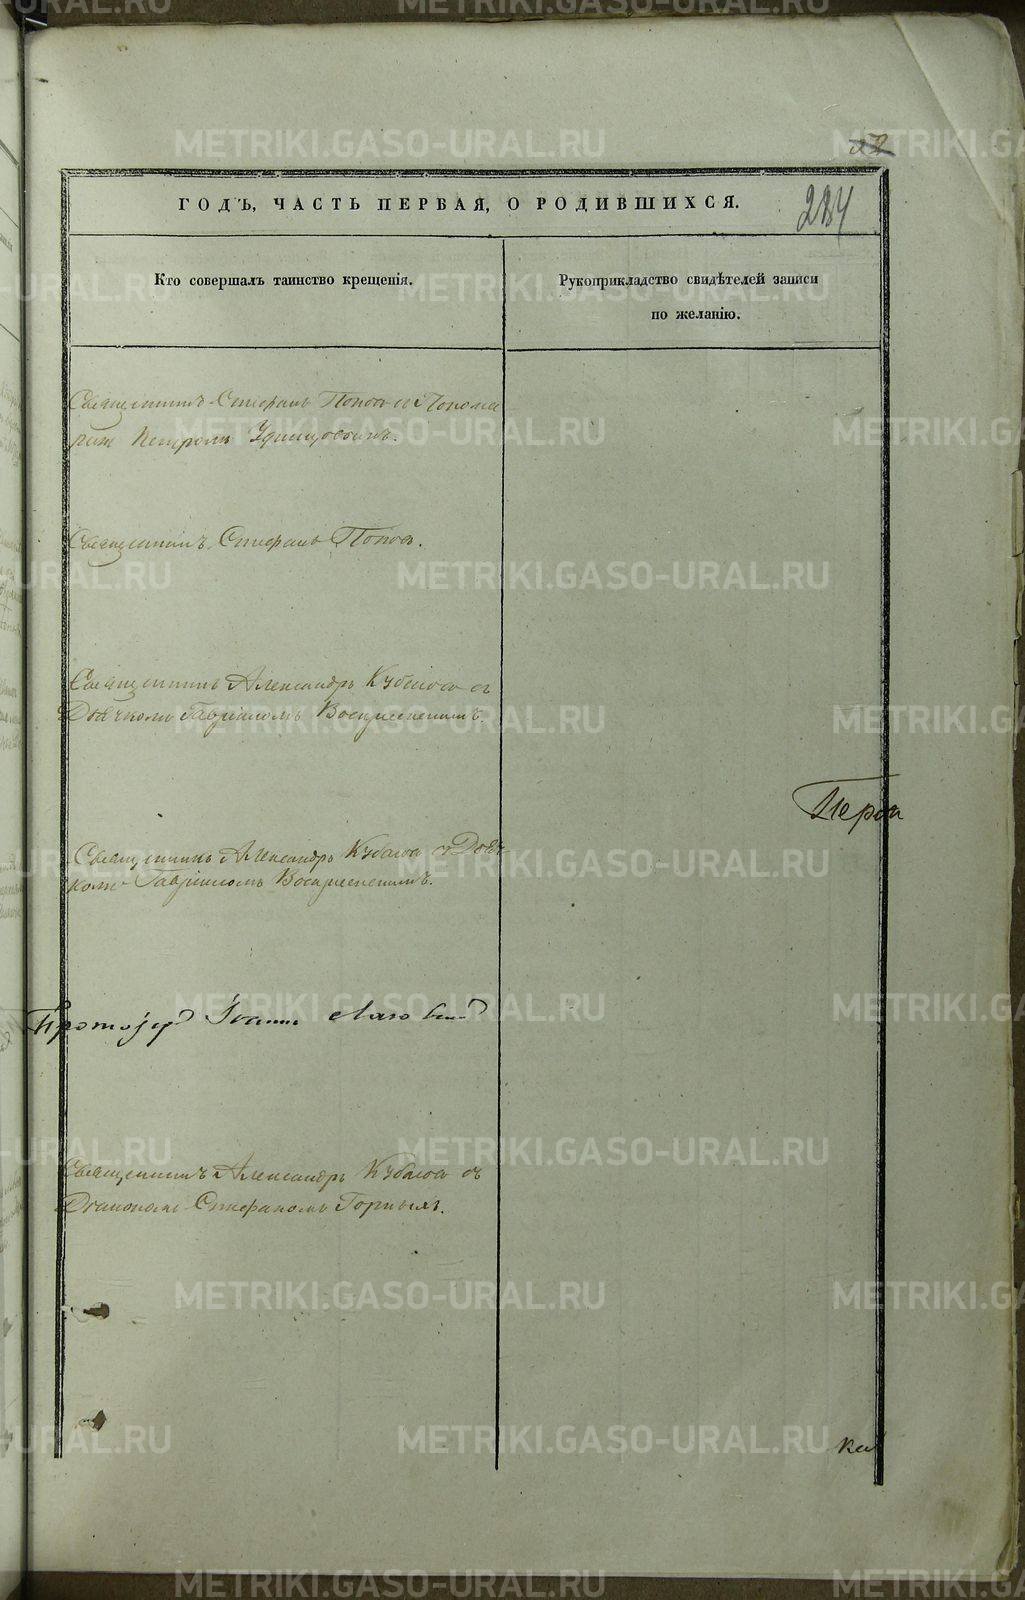 22
ГОДЪ, ЧАСТЬ ПЕРВАЯ, О РОДИВШИХСЯ.
284
Кто совершалъ таинство крещенія.
Рукоприкладство свидѣтелей записи
по желанію.
Священникъ Стефанъ Поповъ съ Понома
ремъ Петромъ Удинцовымъ.
Священникъ Стефанъ Поповъ.
Священникъ Александръ Кубасовъ съ
Дьячкомъ Гавріиломъ Воскресенскимъ.
Священникъ Александръ Кубасовъ съ Дьяч
комъ Гавріиломъ Воскресенскимъ.
Протоіерей Іоаннъ
Священникъ Александръ Кубасовъ съ
Діакономъ Стефаномъ Горныхъ.
METRIKI.GASO-URAL.RU